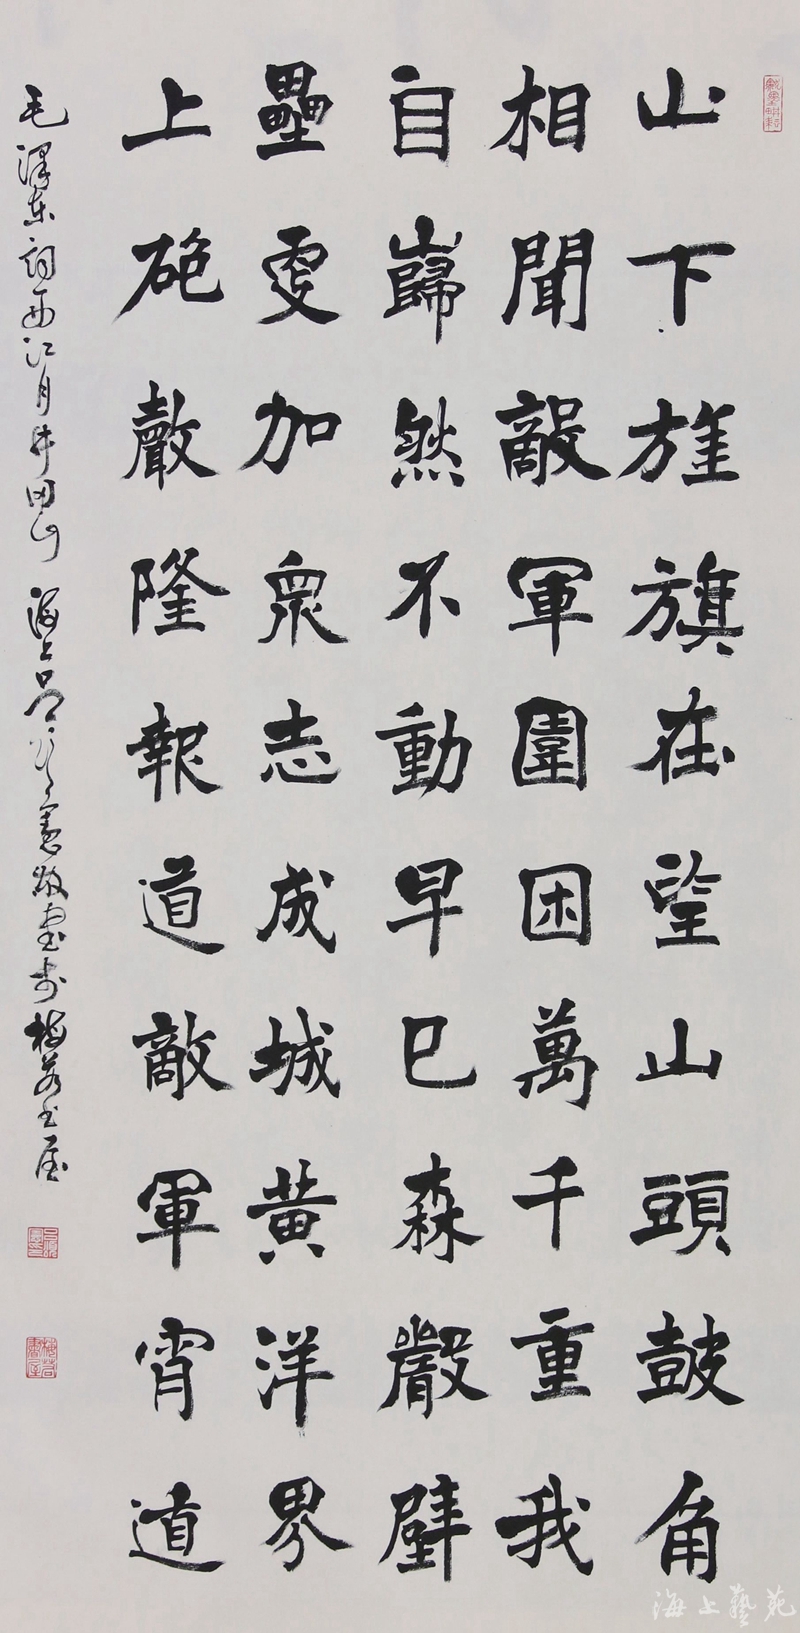 山下旌旗在望山頭鼓角
相聞敵軍圍困萬千重我
自巋然不動早已森嚴壁
壘更加眾志成城黃洋界
上砲聲隆報道敵軍宵遁
毛澤東詞西江月井岡山 海上呂頌憲敬書於梅書屋
海上藝苑